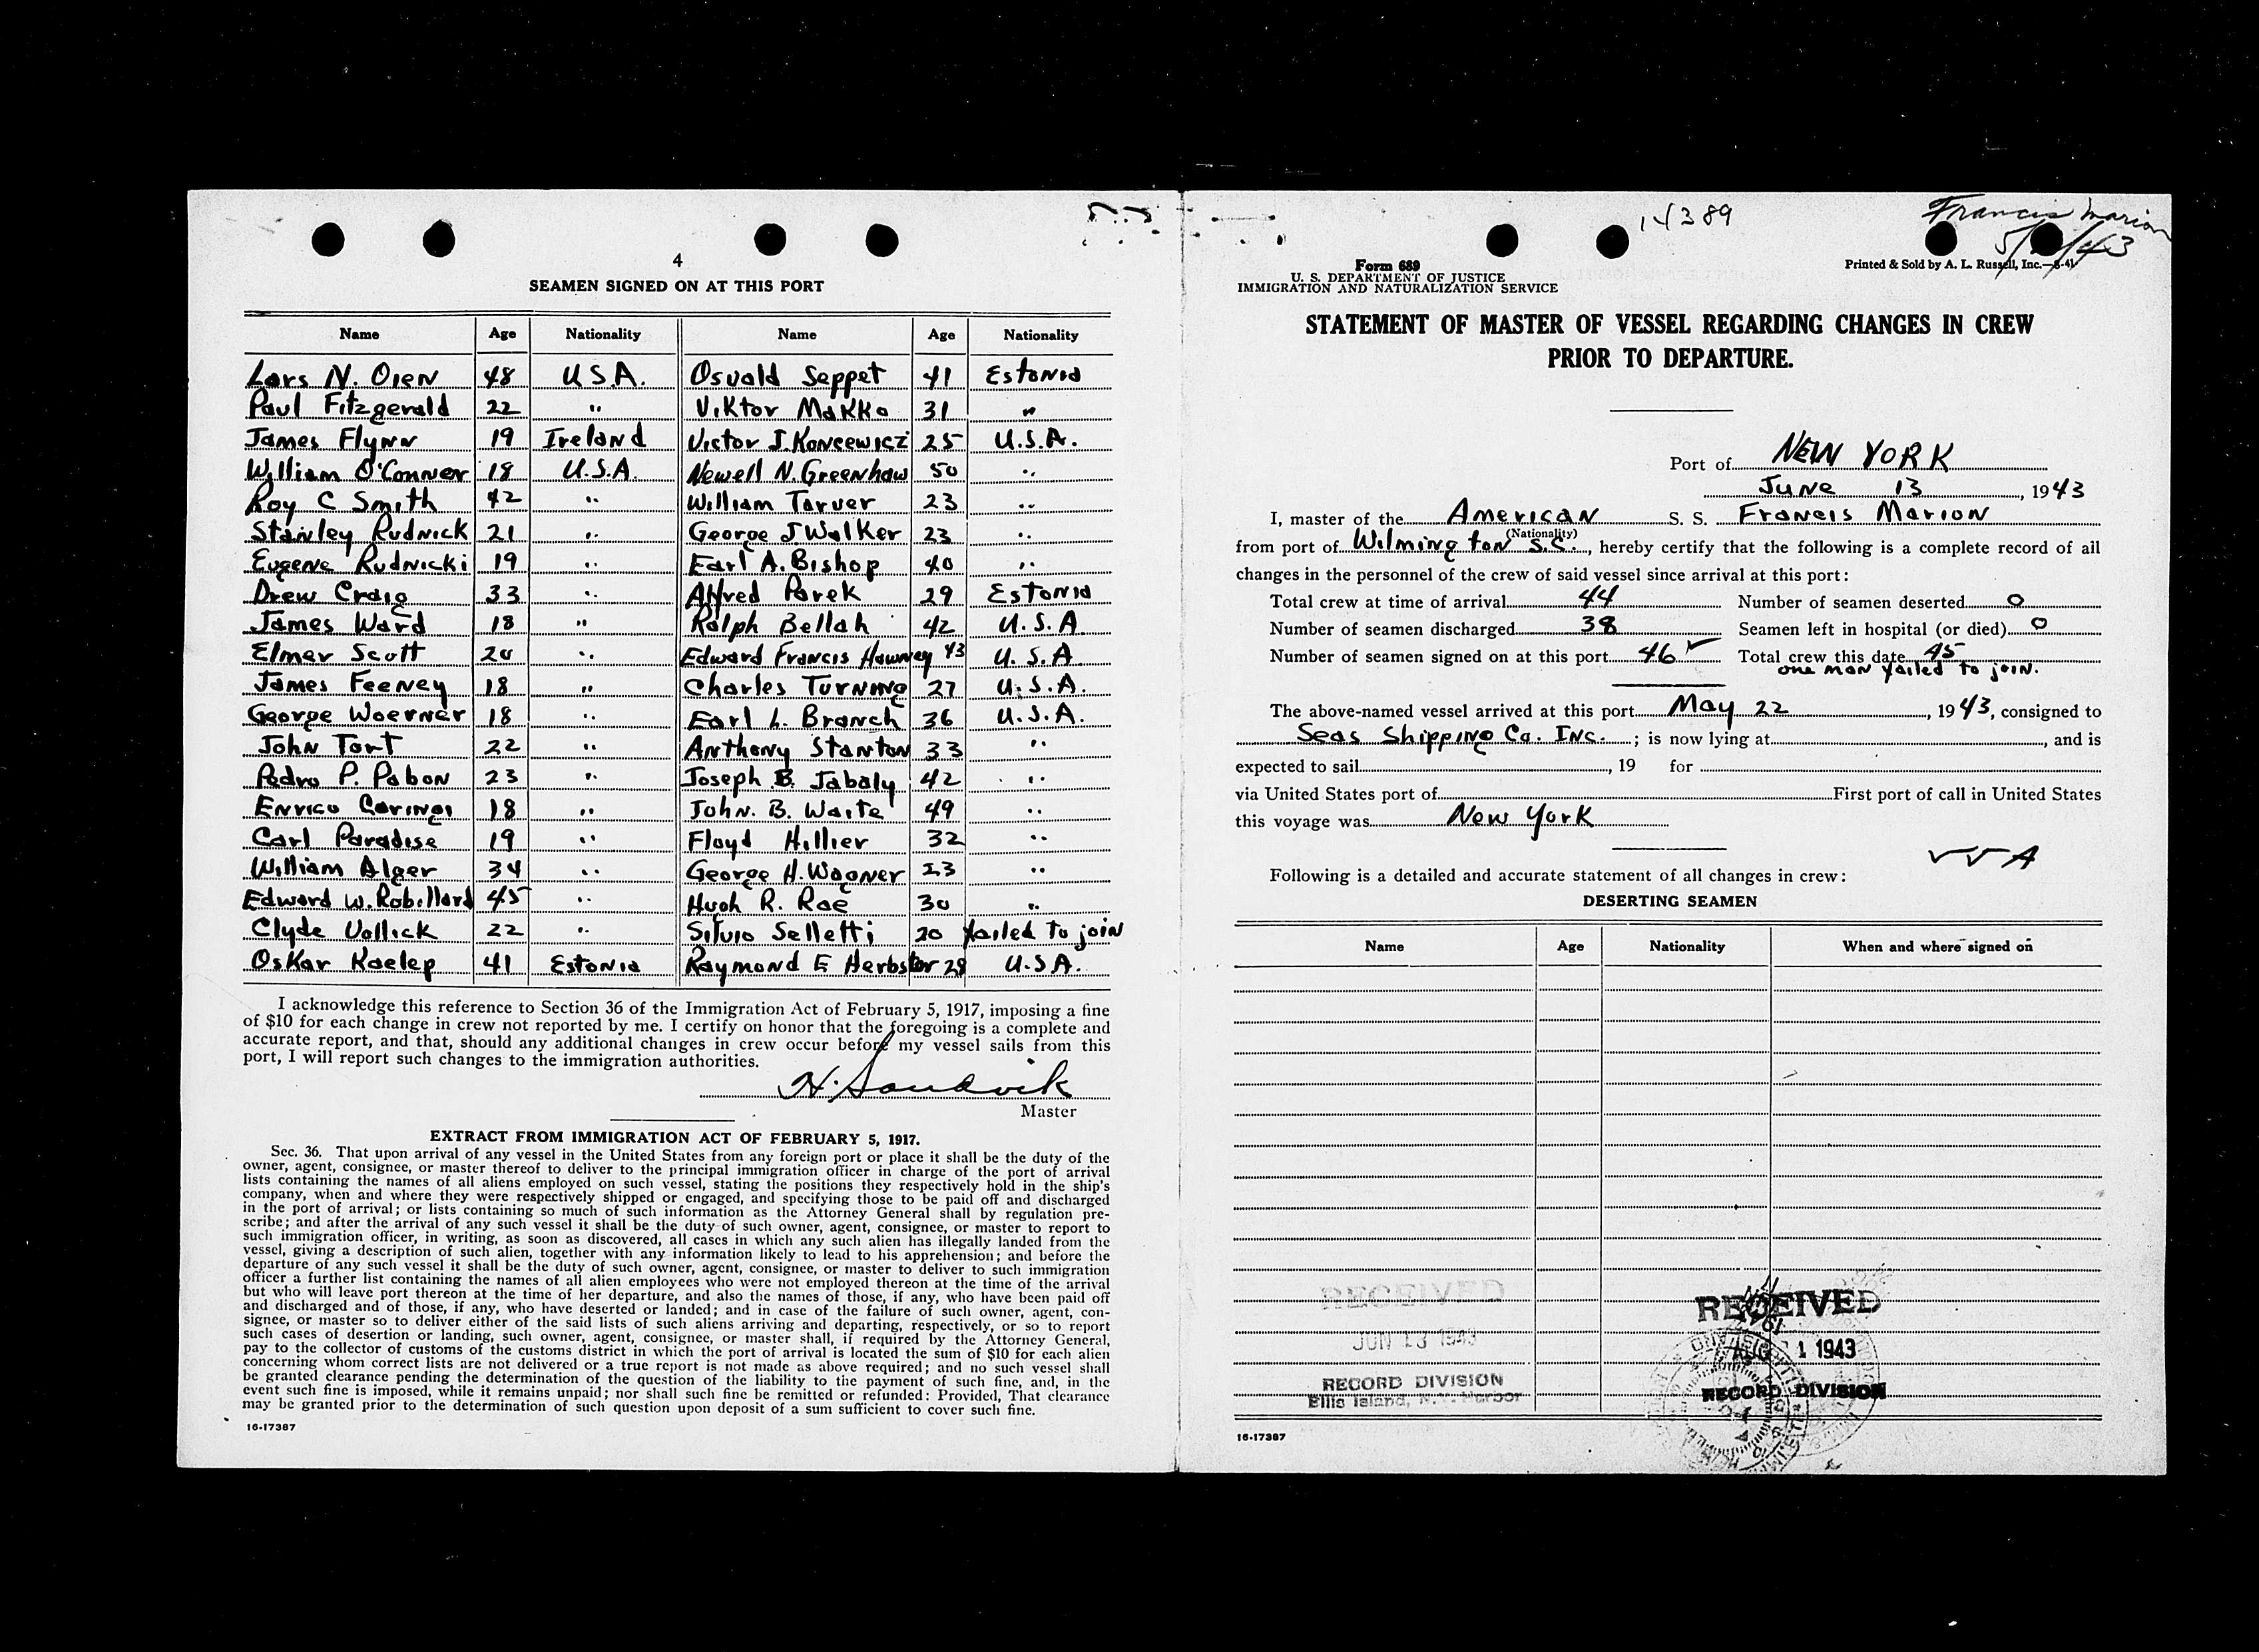 4
SEAMEN SIGNED ON AT THIS PORT
Name Age Nationality Name Age Nationality
Lars N. Olen 48 U.S.A. Osvald Seppet 41 Estonia
Paul Fitzgerald 22 " Viktor Makko 31 "
James Flynn 19 Ireland Victor J. Koncewicz 25 U.S.A.
William O'Conner 18 U.S.A. Newell N. Greenhaw 50 "
Roy C Smith 42 " William Tarver 23 "
Stanley Rudnick 21 " George J Walker 23 "
Eugene Rudnicki 19 " Earl A. Bishop 40 "
Drew Craig 33 " Alfred Parek 29 Estonia
James Ward 18 " Ralph Bellah 42 U.S.A
Elmer Scott 20 " Edward Francis 43 U.S.A
James Feeney 18 " Charles Turning 27 U.S.A.
George Woerner 18 " Earl L. Branch 36 U.S.A.
John Tart 22 " Anthony Stanton 33 "
Pedro P. Pabon 23 " Joseph B. Jabaly 42 "
Enrico 18 " John. B. Waite 49 "
Carl Paradise 19 " Floyd Hillier 32 "
William Alger 34 " George H. Wagner 23 "
Edward W. Robillard 45 " Hugh R. Rae 30 "
Clyde Vallick 22 " Silvio Selletti 20 failed to join
Oskar Kaelep 41 Estonia Raymond E Herbster 28 U.S.A.
I acknowledge this reference to Section 36 of the Immigration Act of February 5, 1917, imposing a fine
of $10 for each change in crew not reported by me. I certify on honor that the foregoing is a complete and
accurate report, and that, should any additional changes in crew occur before my vessel sails from this
port, I will report such changes to the immigration authorities.
H. Sandvik
Master
EXTRACT FROM IMMIGRATION ACT OF FEBRUARY 5, 1917.
Sec. 36. That upon arrival of any vessel in the United States from any foreign port or place it shall be the duty of the
owner, agent, consignee, or master thereof to deliver to the principal immigration officer in charge of the port of arrival
lists containing the names of all aliens employed on such vessel, stating the positions they respectively hold in the ship's
company, when and where they were respectively shipped or engaged, and specifying those to be paid off and discharged
in the port of arrival; or lists containing so much of such information as the Attorney General shall by regulation pre-
scribe; and after the arrival of any such vessel it shall be the duty of such owner, agent, consignee, or master to report to
such immigration officer, in writing, as soon as discovered, all cases in which any such alien has illegally landed from the
vessel, giving a description of such alien, together with any information likely to lead to his apprehension; and before the
departure of any such vessel it shall be the duty of such owner, agent, consignee, or master to deliver to such immigration
officer a further list containing the names of all alien employees who were not employed thereon at the time of the arrival
but who will leave port thereon at the time of her departure, and also the names of those, if any, who have been paid off
and discharged and of those, if any, who have deserted or landed; and in case of the failure of such owner, agent, con-
signee, or master so to deliver either of the said lists of such aliens arriving and departing, respectively, or so to report
such cases of desertion or landing, such owner, agent, consignee, or master shall, if required by the Attorney General,
pay to the collector of customs of the customs district in which the port of arrival is located the sum of $10 for each alien
concerning whom correct lists are not delivered or a true report is not made as above required; and no such vessel shall
be granted clearance pending the determination of the question of the liability to the payment of such fine, and, in the
event such fine is imposed, while it remains unpaid; nor shall such fine be remitted or refunded: Provided, That clearance
may be granted prior to the determination of such question upon deposit of a sum sufficient to cover such fine.
16-17387
14389
Francis Marion
Form 689
U. S. DEPARTMENT OF JUSTICE
IMMIGRATION AND NATURALIZATION SERVICE
Printed & Sold by A. L. Russell, Inc.—8-41
STATEMENT OF MASTER OF VESSEL REGARDING CHANGES IN CREW
PRIOR TO DEPARTURE.
Port of NEW YORK
June 13, 1943
I, master of the American S. S. Francis Marion
(Nationality)
from port of Wilmington S.C., hereby certify that the following is a complete record of all
changes in the personnel of the crew of said vessel since arrival at this port:
Total crew at time of arrival 44 Number of seamen deserted 0
Number of seamen discharged 38 Seamen left in hospital (or died) 0
Number of seamen signed on at this port 46 ✓ Total crew this date 45
one man failed to join.
The above-named vessel arrived at this port May 22, 1943, consigned to
Seas Shipping Co. Inc.; is now lying at, and is
expected to sail, 19 for
via United States port of First port of call in United States
this voyage was New York
Following is a detailed and accurate statement of all changes in crew:
DESERTING SEAMEN
Name Age Nationality When and where signed on
RECEIVED
JUN 13 1943
RECORD DIVISION
Ellis Island, N.Y. Harbor
RECEIVED
AUG 1 1943
RECORD DIVISION
16-17387